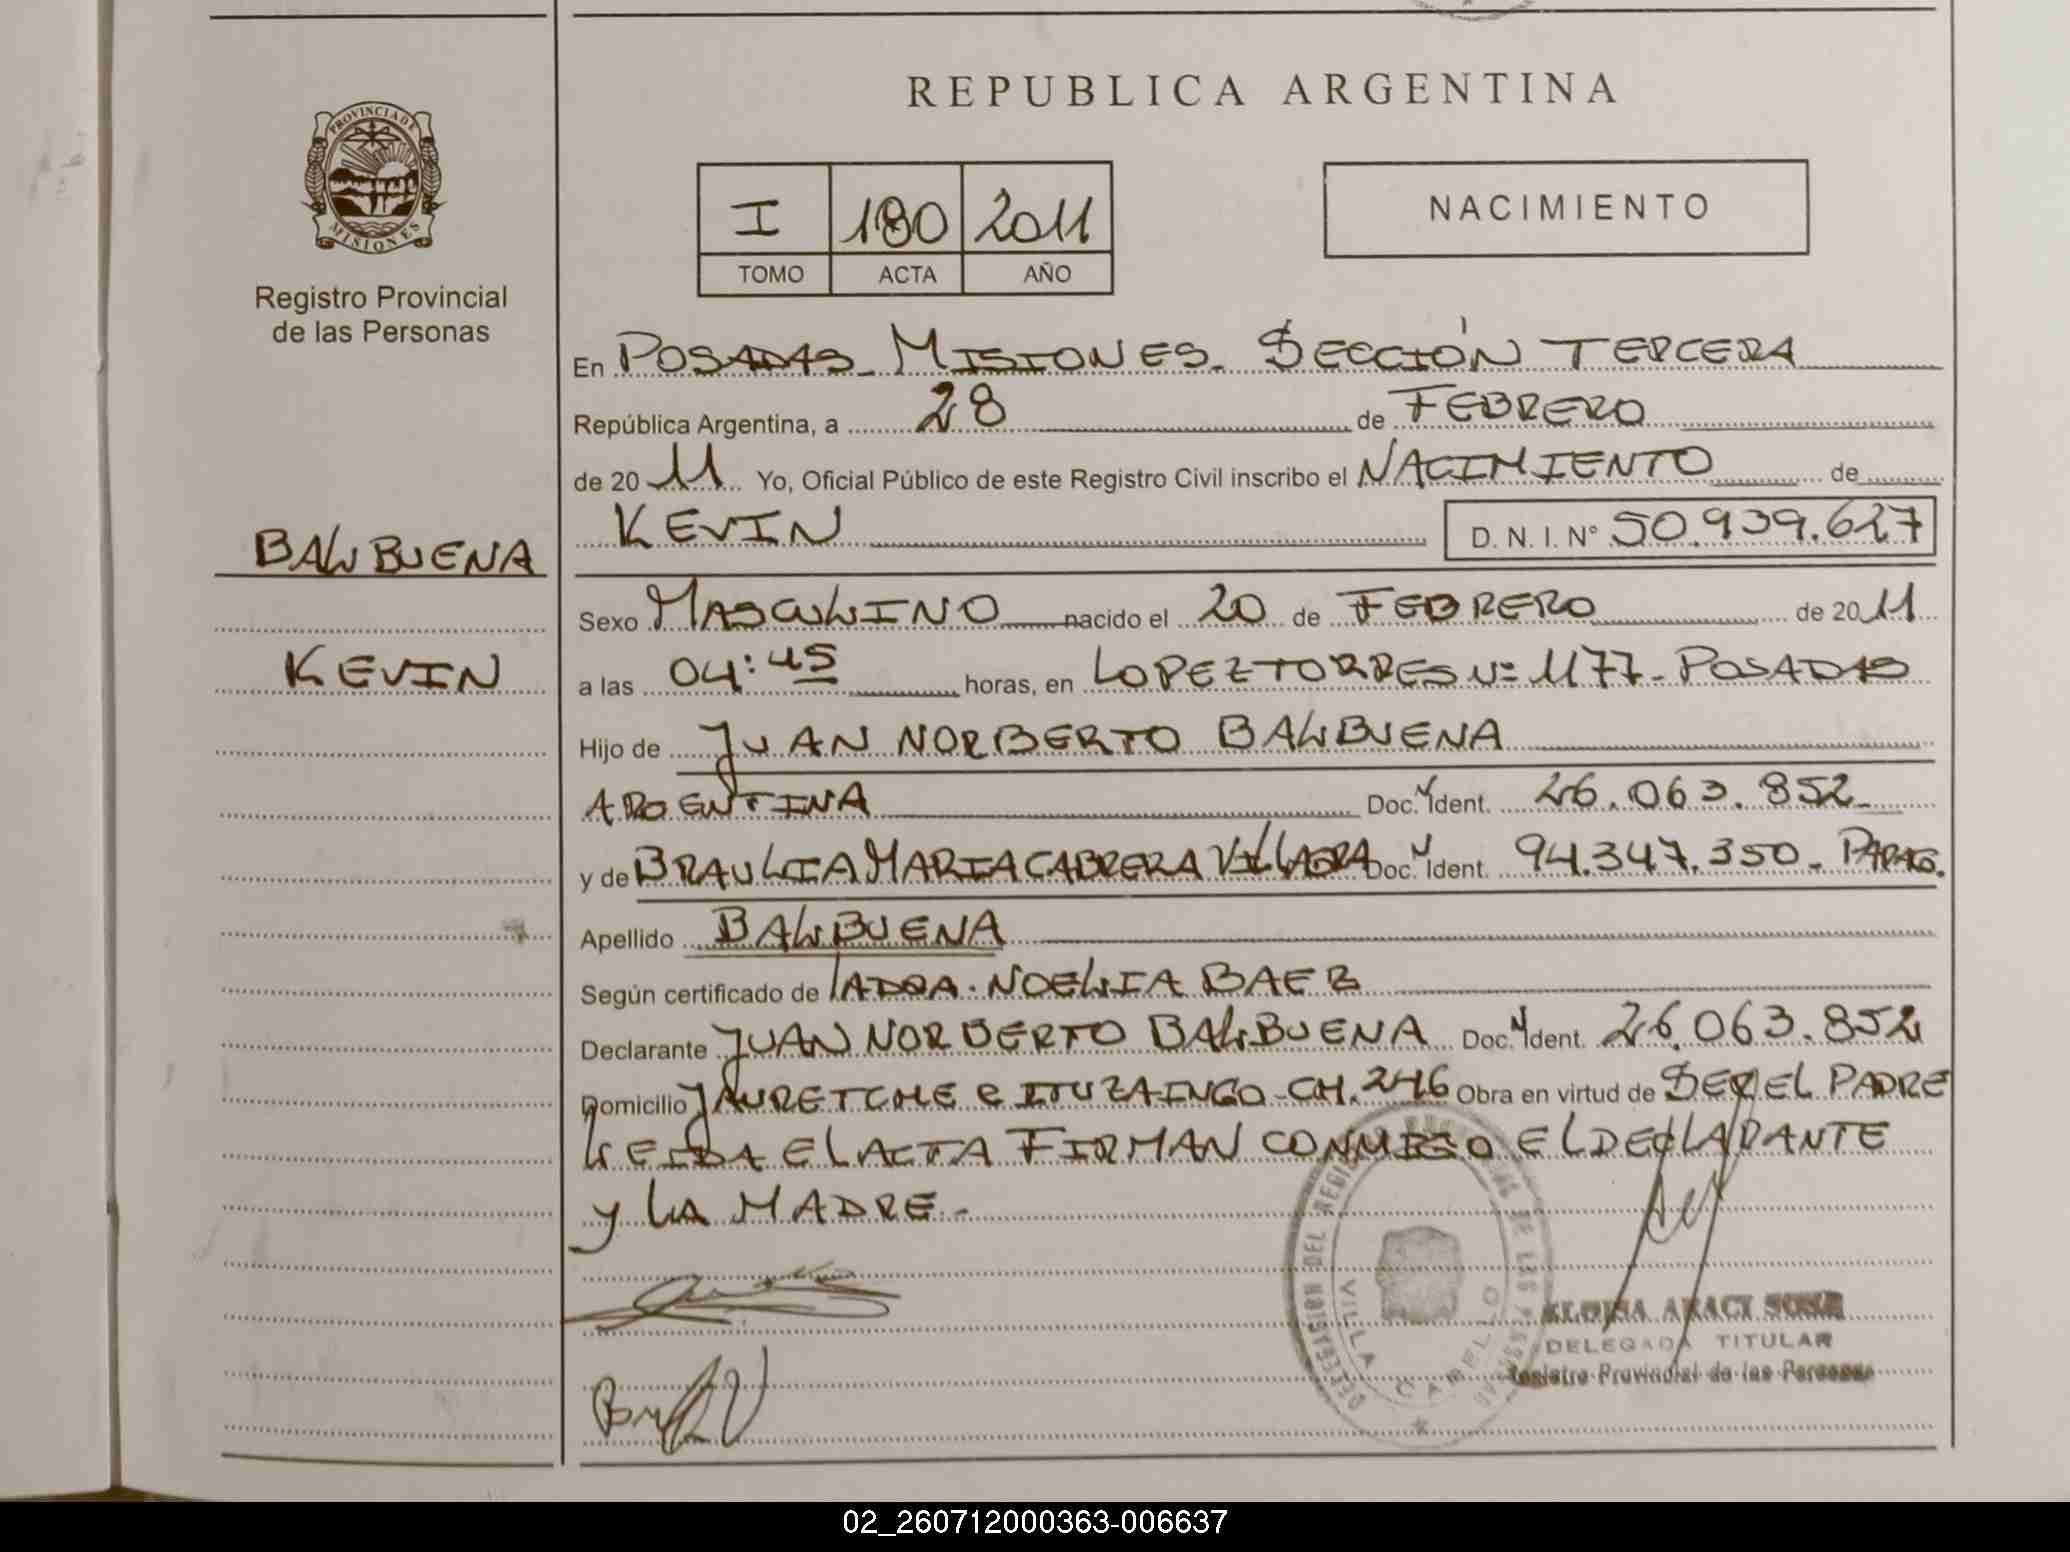 REPUBLICA ARGENTINA
PROVINCIA DE
MISIONES
Registro Provincial
de las Personas
I 180 2011
TOMO ACTA AÑO
NACIMIENTO
En POSADAS - MISIONES - SECCIÓN TERCERA
República Argentina, a 28 de FEBRERO
de 2011 Yo, Oficial Público de este Registro Civil inscribo el NACIMIENTO de
KEVIN D. N. I. N° 50.939.627
BALBUENA
KEVIN
Sexo MASCULINO nacido el 20 de FEBRERO de 2011
a las 04:45 horas, en LOPEZ TORRES Nº 1177 - POSADAS
Hijo de JUAN NORBERTO BALBUENA
ARGENTINA Doc. N Ident. 26.063.852
y de BRAULIA MARIA CABRERA VILLAGRA Doc. N Ident. 94.347.350 - PARAG.
Apellido BALBUENA
Según certificado de LA DRA. NOELIA BAEZ
Declarante JUAN NORBERTO BALBUENA Doc. N Ident. 26.063.852
Domicilio JAURETCHE e ITUZAINGO - CH. 246 Obra en virtud de SER EL PADRE
LEIDA EL ACTA FIRMAN CONMIGO EL DECLARANTE
y LA MADRE -
DELEGACION DEL REGISTRO PROVINCIAL DE LAS PERSONAS
VILLA CABELLO
DELEGADA TITULAR
Registro Provincial de las Personas
02_260712000363-006637